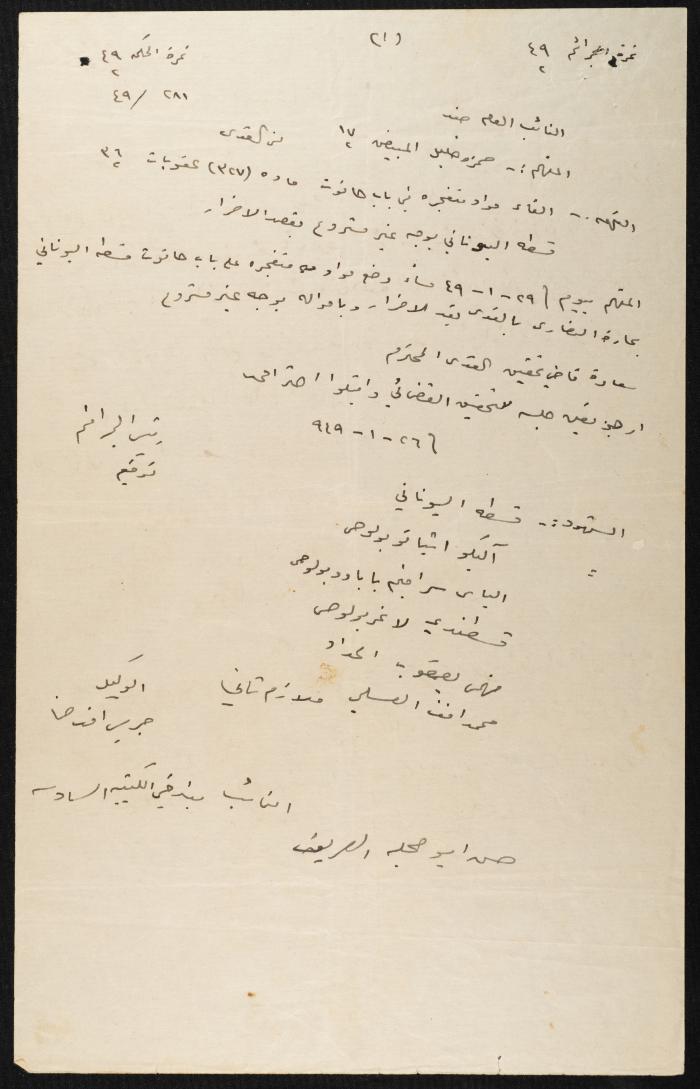 (١)
نمرة الجرائم ٤٩/٢
نمرة المحكمة ٤٩/٢
٢٨١ / ٤٩
النائب العام ضد
المتهم :- حمزه خليل المبيض ١٧/٢ من القدس
التهمه :- القاء مواد متفجره في باب حانوت ماده (٣٢٧) عقوبات ٣٦/٢
قسطه اليوناني بوجه غير مشروع بقصد الاضرار
المتهم بيوم ٢٩ - ١ - ٤٩ مساء وضع مواد متفجره على باب حانوت قسطه اليوناني
بحارة النصارى بالقدس بقصد الاضرار وبامواله بوجه غير مشروع
سعادة قاضي تحقيق القدس المحترم
ارجو تعين جلسه للتحقيق القضائي واقبلوا احترامي
٢٦ - ١ - ٩٤٩
رئيس الجرائم
توقيع
الشهود :- قسطه اليوناني
اليكو
الياس سرافيم بابادوبولوس
قسطندي لاغربولوس
فهمي يعقوب الحداد
محمد افندي العسلي ملازم ثاني
الوكيل
جريس افندي
النائب بندقي الكتيبه السادسه
حسن ابو عجله